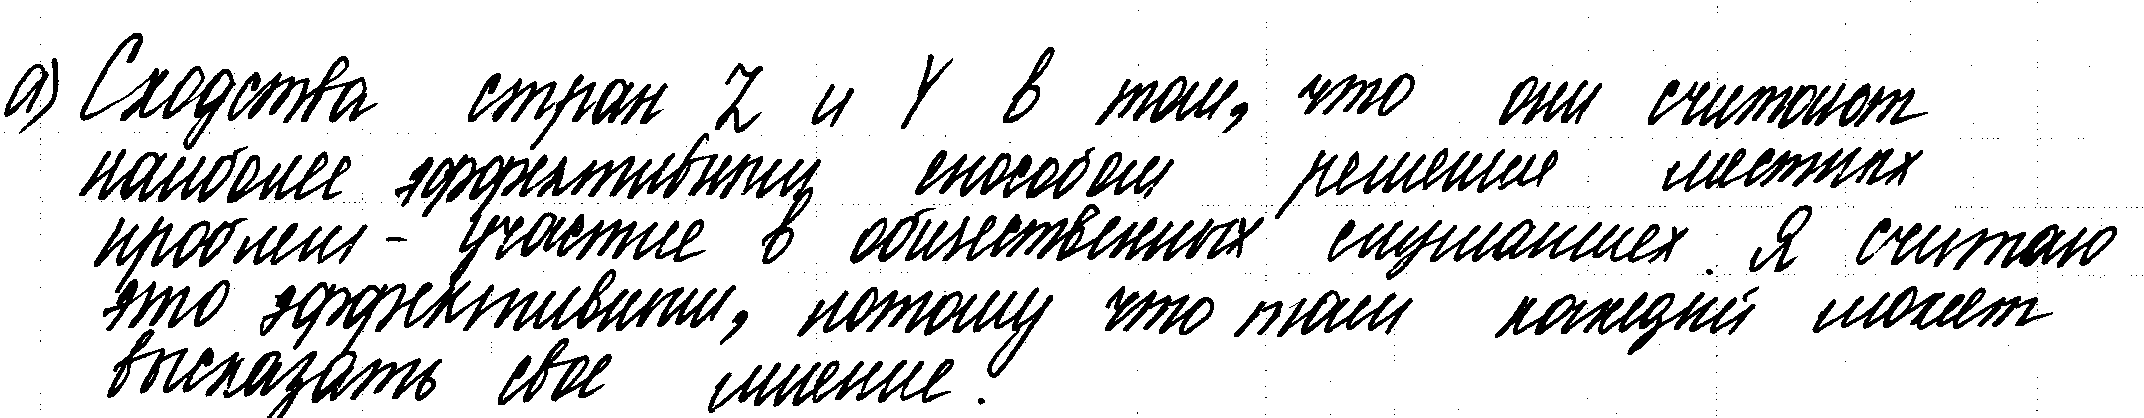 а) Сходства стран Z и Y в том, что они считают
наиболее эффективным способом решение местных
проблем - участие в общественных слушаниях. Я считаю
это эффективным, потому что там каждый может
высказать свое мнение.